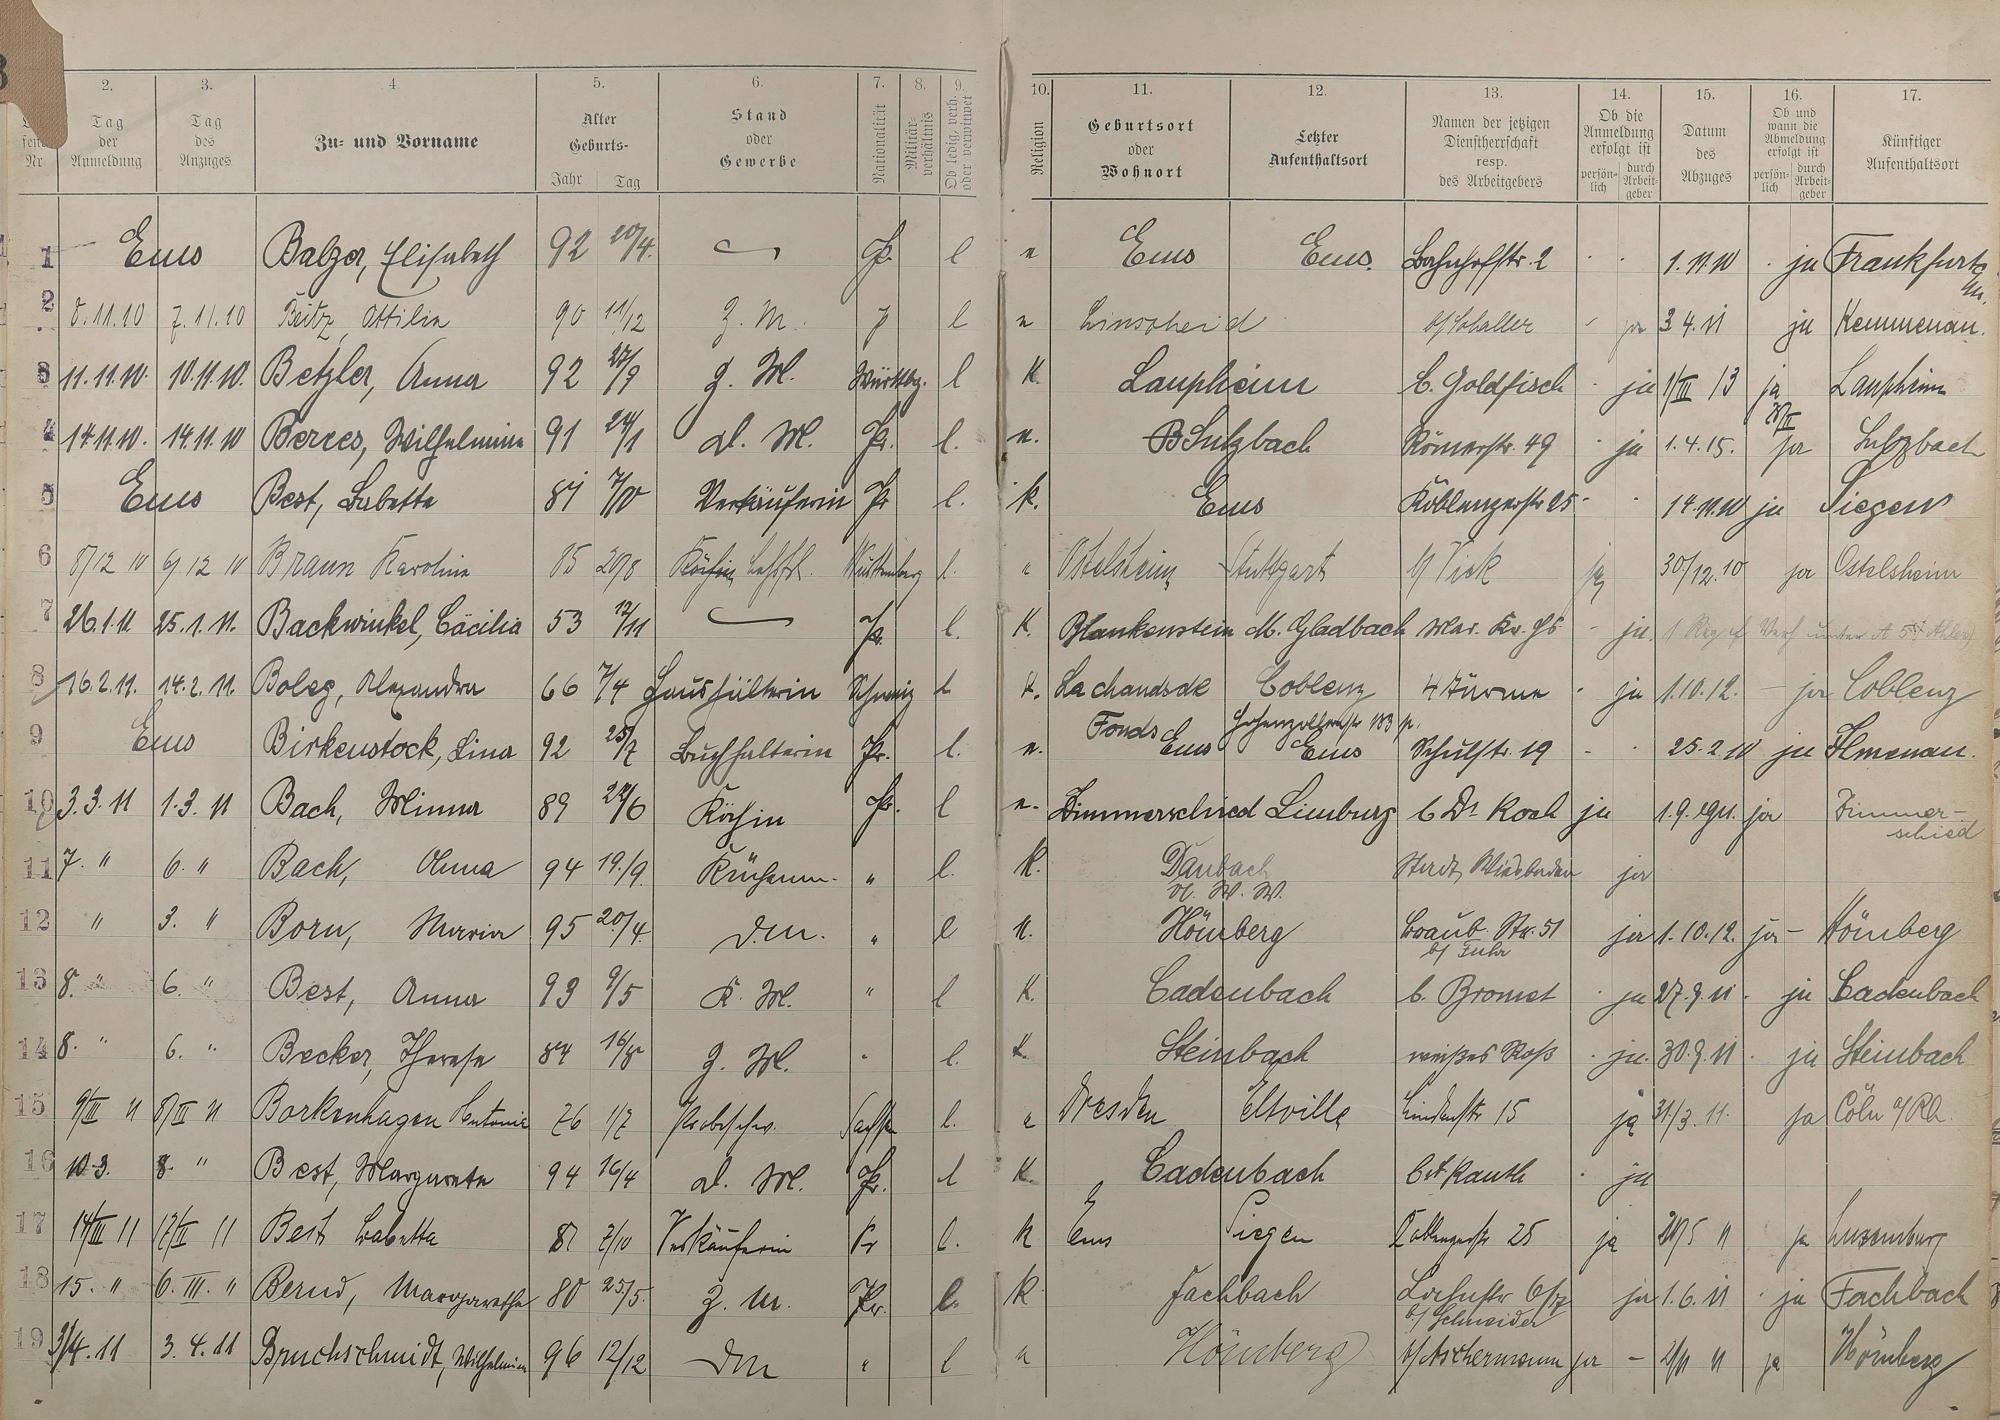 2. 3. 4 5. 6. 7. 8. 9. 10. 11. 12. 13. 14. 15. 16. 17.
Tag der Anmeldung
Tag des Anzuges
Zu- und Vorname
Alter Geburts- Jahr Tag
Stand oder Gewerbe
Nationalität
Militär-verhältnis
Ob ledig, verh. oder verwitwet
Religion
Geburtsort oder Wohnort
Letzter Aufenthaltsort
Namen der jetzigen Dienstherrschaft resp. des Arbeitgebers
Ob die Anmeldung erfolgt ist persön-lich durch Arbeit-geber
Datum des Abzuges
Ob und wann die Abmeldung erfolgt ist persön-lich durch Arbeit-geber
Künftiger Aufenthaltsort
1 Ems Balzer, Elisabeth 92 20/4. Pr. l Ems Ems. Bahnhofstr. 2 1.11.10 ja Frankfurt
2 8.11.10 7.11.10 Beitz, Ottilie 90 11/12 Z. M. P l Linscheid b/ Schaller ja 3 4.11 ja Kemmenau.
3 11.11.10. 10.11.10. Betzler, Anna 92 27/9 Z. M. Württbg. l K. Laupheim b. Goldfisch ja 1/III 13 ja Laupheim
4 14.11.10. 14.11.10 Berres, Wilhelmine 91 24/1 D. M. Pr. l. Sulzbach Römerstr. 49 ja 1.4.15. ja Sulzbach
5 Ems Best, Babette 87 7/10 Verkäuferin Pr l. K. Ems Koblenzerstr 25 14.11.10 ja Siegen
6 8/12 10 6/12 10 Braun Karoline 85 20/8 Köchin Württemberg l. Ostelsheim Stuttgart b/ Vick ja 30/12.10 ja Ostelsheim
7 26.1.11. 25.1.11. Backwinkel, Cäcilia 53 12/11 Pr. l. K. Blankenstein M. Gladbach ja
8 16.2.11. 14.2.11. Boleg, Alexandra 66 7/4 Haushälterin Schweiz l K. La chauds de Coblenz 4 Türme ja 1.10.12. ja Coblenz
Fonds Hohenzollernstr 183
9 Ems Birkenstock, Lina 92 25/7 Buchhalterin Pr. l. Ems Ems Schulstr. 19 25.2.11 ja Ilmenau.
10 3.3.11 1.3.11 Bach, Minna 89 24/6 Köchin Pr. l Zimmerschied Limburg b Dr. Koch ja 1.9.1911. ja Zimmer-
schied
11 7. " 6. " Bach, Anna 94 19./9. Küchenm. " l. K. Daubach Stadt Wiesbaden ja
12 " 3. " Born, Maria 95 20./4. D.M. " l Hömberg Braub. Str. 51 ja 1.10.12. ja - Hömberg
b/ Fuhr
13 8. " 6. " Best, Anna 93 9/5 K. M. " l K. Cadenbach b. Bromet ja 27.9.11. ja Cadenbach
14 8. " 6. " Becker, Therese 84 16/8 Z. M. " l. K. Steinbach weißes Roß ja. 30.9.11. ja Steinbach
15 9/III 11 8/III 11 Borkenhagen Antonie 76 1/7 Sachsen l. Dresden Eltville Lindenstr 15 ja 31/3.11. ja Cöln a/Rh.
16 10.3. 8. " Best, Margarete 94 16/4 D. M. Pr. l K. Cadenbach ja
17 14/III 11 12/III 11 Best Babetta 87 7/10 Verkäuferin Pr l. K Ems Siegen Koblenzerstr 25 ja 20/5 11 ja Luxemburg
18 15. " 6. III. " Bernd, Margarethe 80 25./5. Z. M. Pr. l. K Fachbach Lahnstr ja 1.6.11 ja Fachbach
b/ Schneider
19 3/4.11 3.4.11 Bruchschmidt, Wilhelmine 96 12/12 DM " l Hömberg b/ Aschermann ja - ja Hömberg